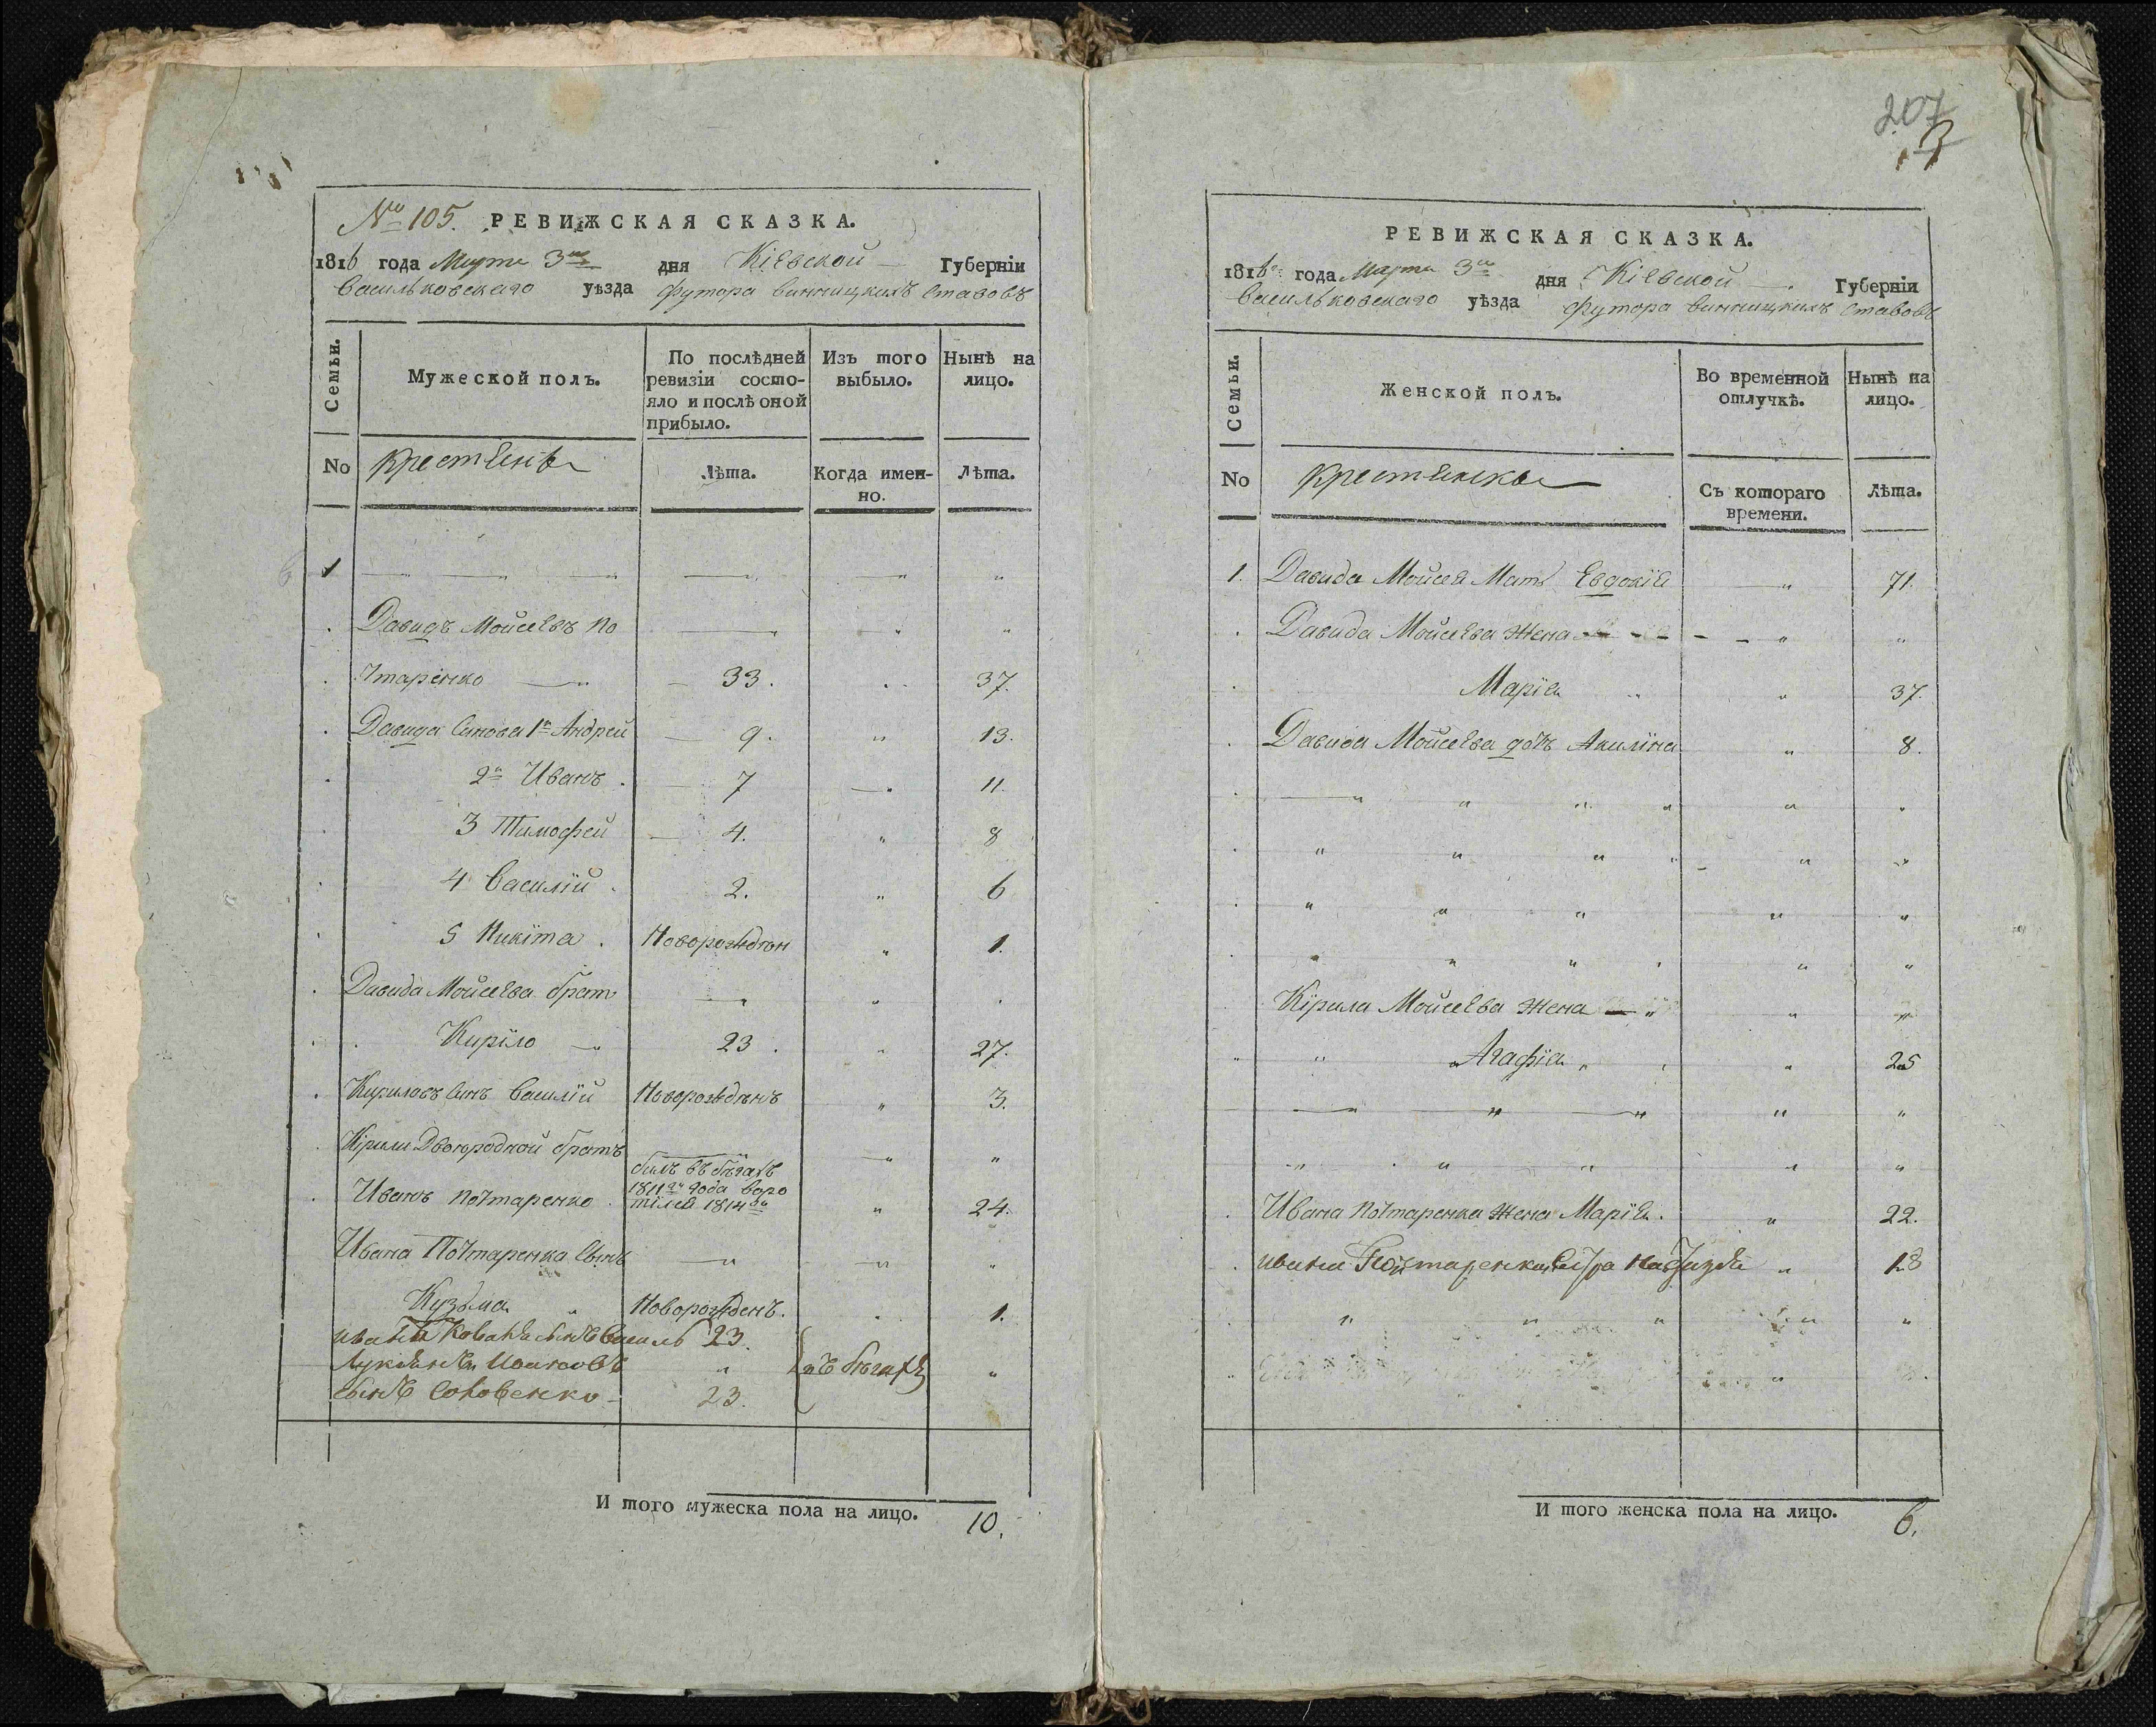 207
3
№ 105. РЕВИЖСКАЯ СКАЗКА.
1816 года Марта 3го дня Кіевской Губерніи
Васильковскаго уѣзда футора винницкихъ ставовъ
Семьи.
Мужеской полъ.
По послѣдней ревизіи состояло и послѣ оной прибыло.
Изъ того выбыло.
Нынѣ на лицо.
No
крестьяне
Лѣта.
Когда именно.
Лѣта.
1
Давидъ Мойсеевъ По
чтаренко 33. 37.
Давида Синовя 1й Андрей 9. 13.
2й Иванъ. 7 11.
3 Тимофей 4. 8
4 Василій. 2. 6
5 Никіта. Новорожден 1.
Давида Мойсеева брат
Кирило 23. 27.
Кириловъ Синъ Василій Новорожденъ 3.
Кірили Двоюродной братъ
билъ въ бѣгахъ
1811го года воро
Иванъ Почтаренко. тілся 1814го 24.
Ивана Почтаренка Сынъ
Кузьма Новорожденъ. 1.
Ивана Коваля сынъ Василь 23.
Лукьянъ Ивановъ въ бѣгахъ
сынъ Соловенко 23.
И того мужеска пола на лицо. 10.
РЕВИЖСКАЯ СКАЗКА.
1816го года Марта 3го дня Кіевской Губерніи
Васильковскаго уѣзда футора винницкихъ ставовъ
Семьи.
Женской полъ.
Во временной отлучкѣ.
Нынѣ на лицо.
No
крестьянки
Съ котораго времени.
Лѣта.
1. Давида Мойсея Мать Евдокія 71.
Давида Мойсеева жена
Марія 37.
Давида Мойсеева дочь Акилина 8.
Кірила Мойсеева жена
Агафія 25
Ивана Почтаренка жена Марія. 22.
Ивана Почтаренка сестра 18
И того женска пола на лицо. 6.